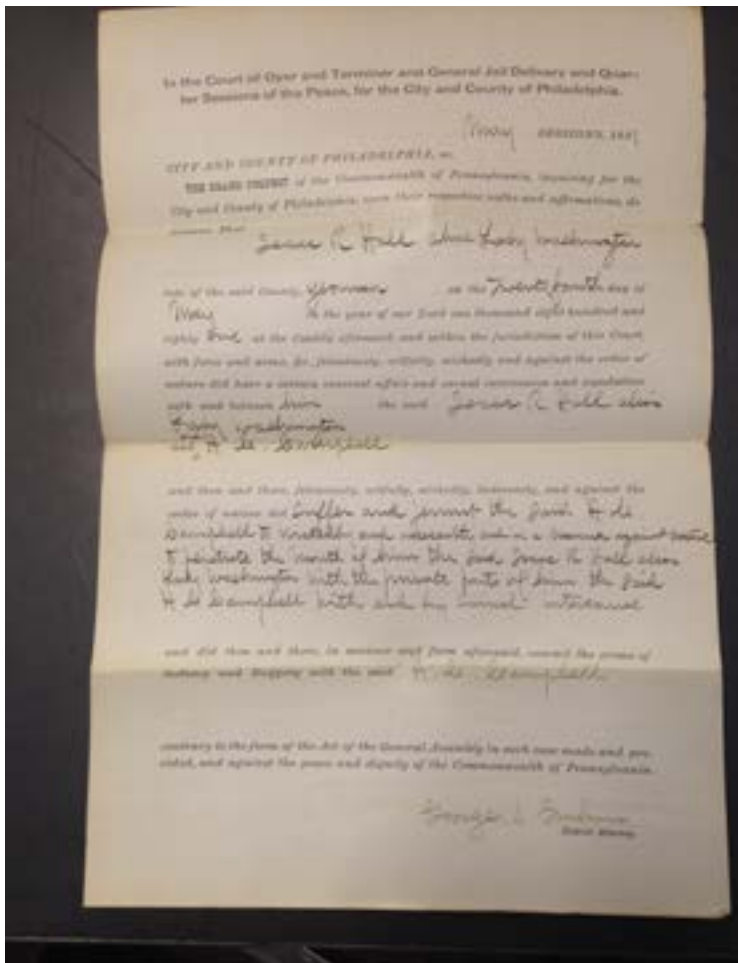 In the Court of Oyer and Terminer and General Jail Delivery and Quar-
ter Sessions of the Peace, for the City and County of Philadelphia.
May SESSIONS, 188
CITY AND COUNTY OF PHILADELPHIA, ss.
THE GRAND INQUEST of the Commonwealth of Pennsylvania, inquiring for the
City and County of Philadelphia, upon their respective oaths and affirmations, do
present, That
R Hall alias Washington
late of the said County, yeoman on the Twenty fourth day of
May in the year of our Lord one thousand eight hundred and
eighty at the County aforesaid, and within the jurisdiction of this Court,
with force and arms, &c., feloniously, wilfully, wickedly and against the order of
nature did have a certain venereal affair and carnal
with and between him the said R Hall alias
Washington
Campbell
and then and there, feloniously, wilfully, wickedly, and against the
order of nature did suffer and permit the said
Campbell to and in a manner against nature
to penetrate the mouth of him the said R Hall alias
Washington with the private parts of him the said
Campbell intercourse
and did then and there, in manner and form aforesaid, commit the crime of
Sodomy and Buggery with the said Campbell
contrary to the form of the Act of the General Assembly in such case made and pro-
vided, and against the peace and dignity of the Commonwealth of Pennsylvania.
George
District Attorney.